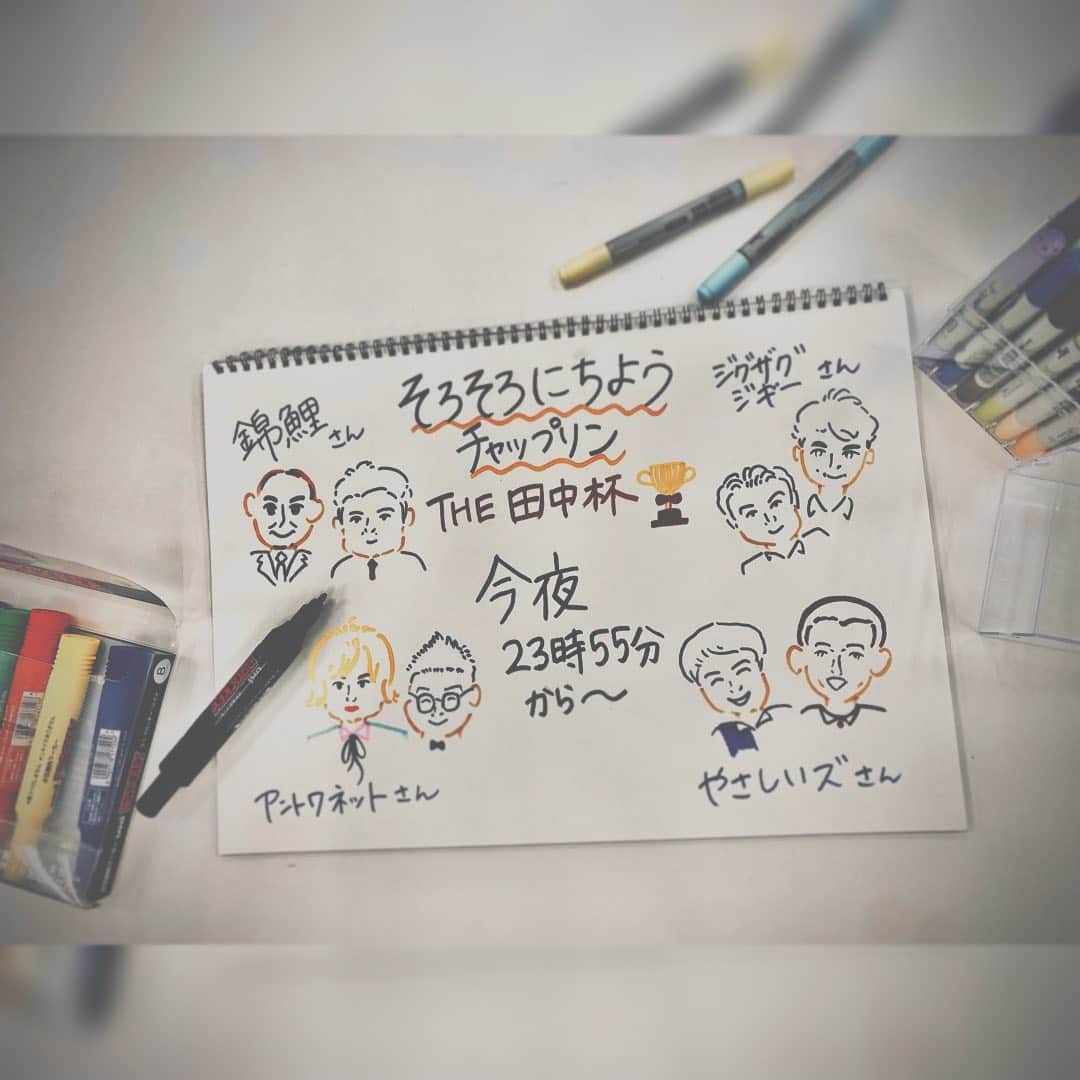 そろそろにちよう
チャップリン
THE 田中杯
錦鯉さん
ジグザグ
ジギー さん
今夜
23時55分
から〜
アントワネットさん
やさしいズさん